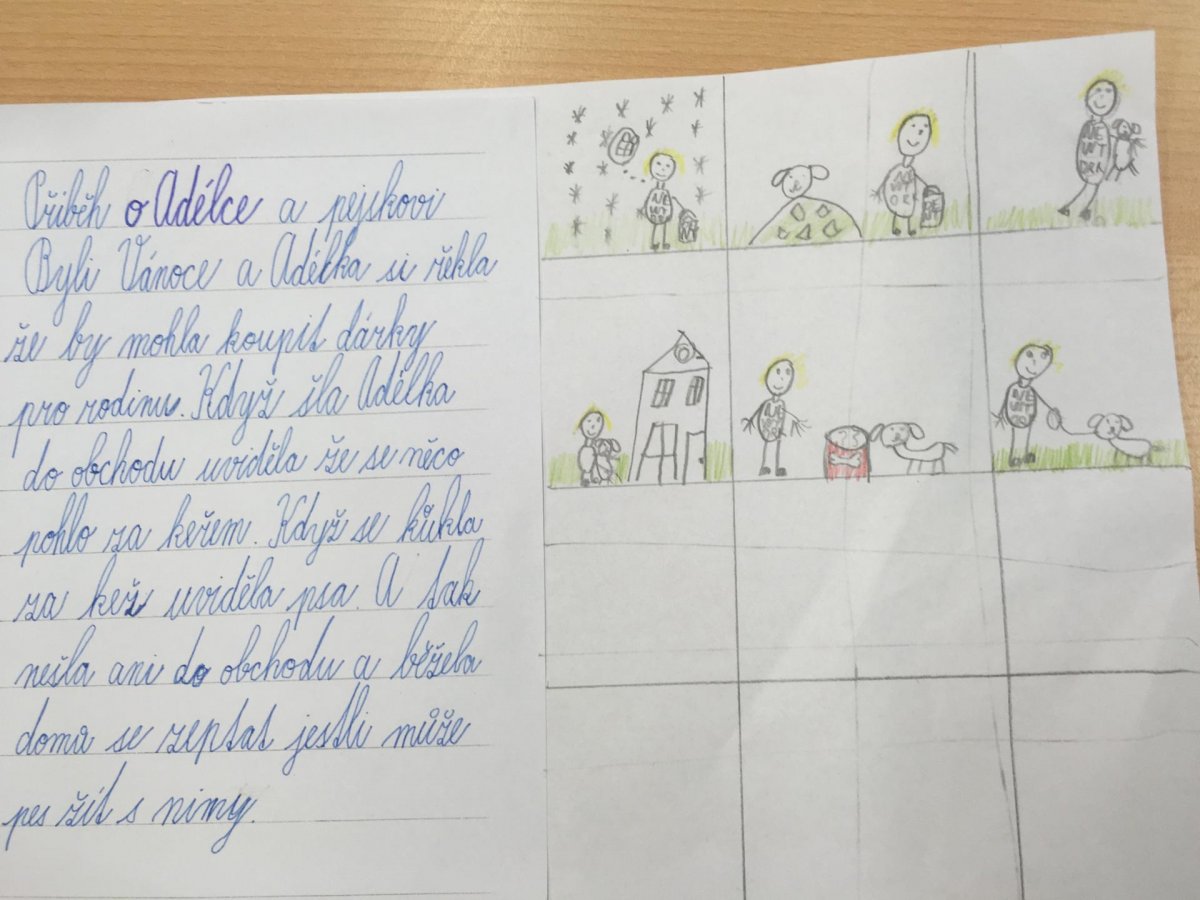 Příběh o Adélce a pejskovi
Byli Vánoce a Adélka si řěkla
že by mohla koupit dárky
pro rodinu. Když šla Adélka
do obchodu uviděla že se něco
pohlo za keřem. Když se kůkla
za kež uviděla psa. A tak
nešla ani do obchodu a běžela
doma se zeptat jestli může
pes žít s nimy.
NE